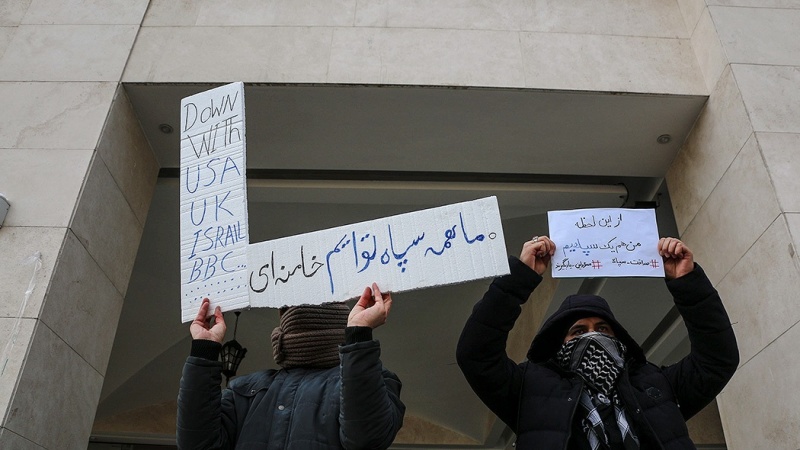 DOWN
WITH
USA
UK
ISRAIL
BBC...
.........
ما همه سپاه توایم خامنه‌ای
از این لحظه
من هم یک سپاهیم
#ساخت_سپاه